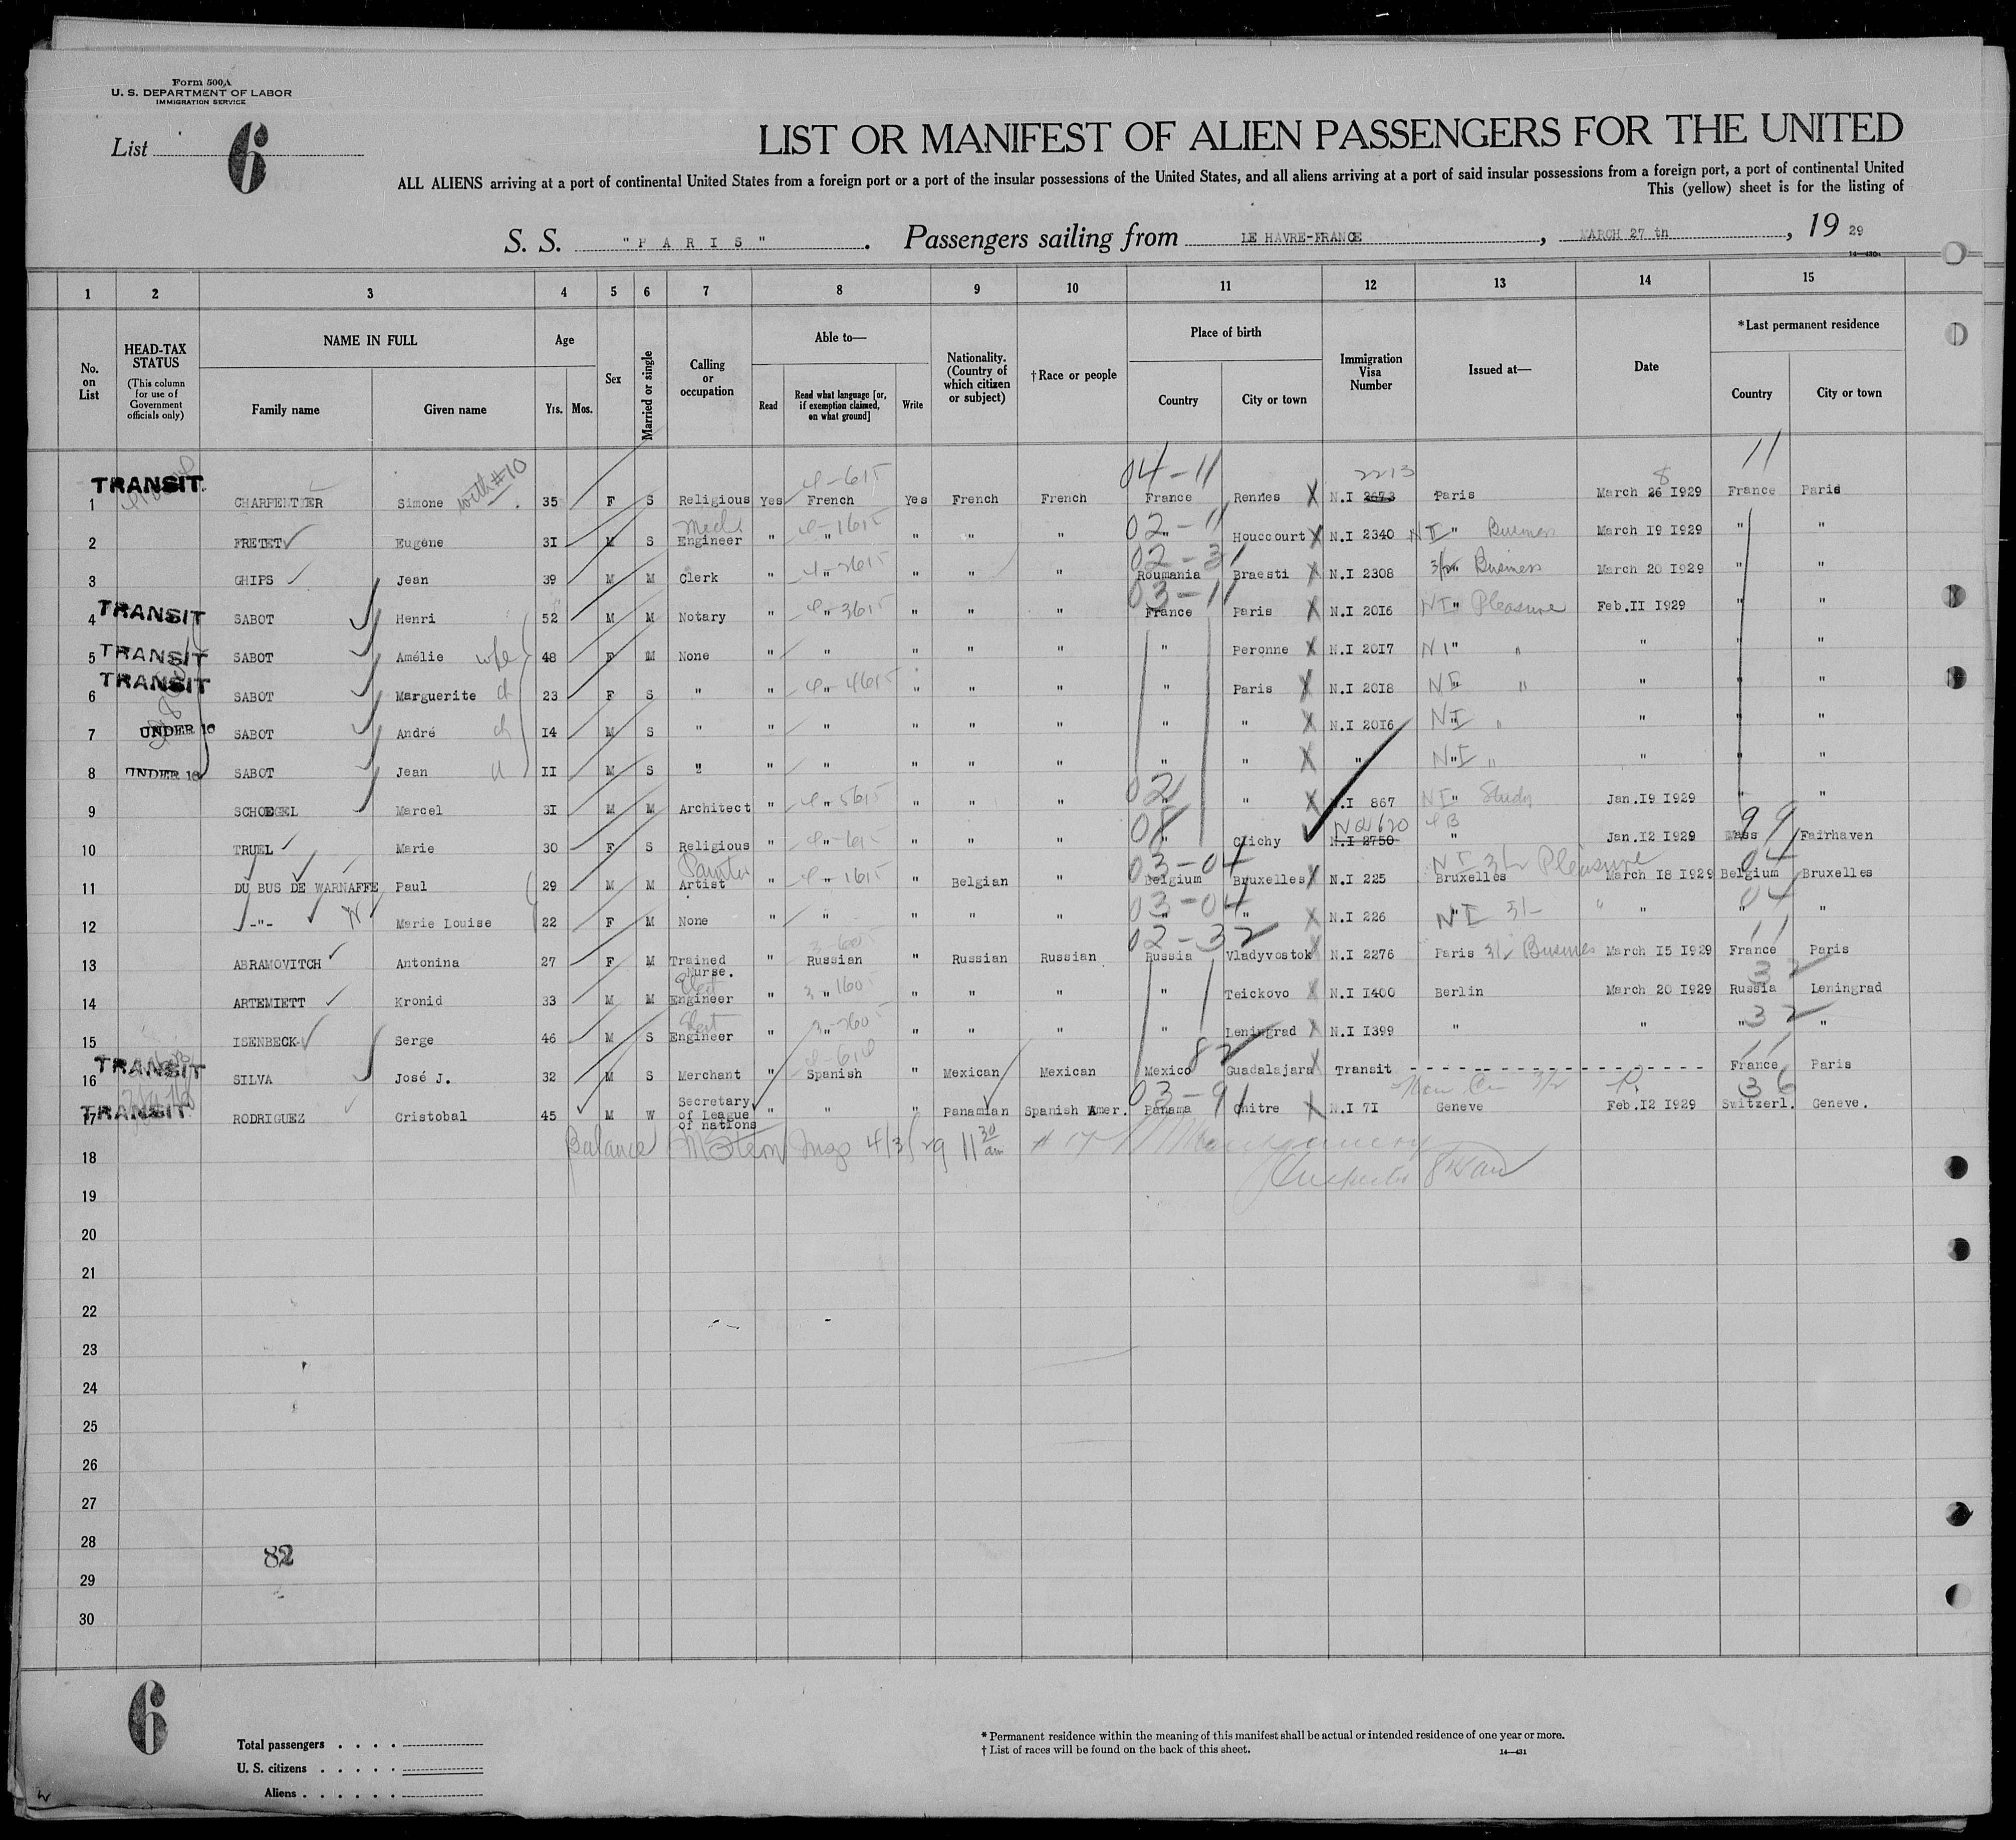 Form 500A
U. S. DEPARTMENT OF LABOR
IMMIGRATION SERVICE
List 6
LIST OR MANIFEST OF ALIEN PASSENGERS FOR THE UNITED
ALL ALIENS arriving at a port of continental United States from a foreign port or a port of the insular possessions of the United States, and all aliens arriving at a port of said insular possessions from a foreign port, a port of continental United
This (yellow) sheet is for the listing of
S. S. "PARIS". Passengers sailing from LE HAVRE-FRANCE, MARCH 27 th, 19 29
14—430a
1 2 3 4 5 6 7 8 9 10 11 12 13 14 15
No. on List
HEAD-TAX STATUS (This column for use of Government officials only)
NAME IN FULL Family name Given name
Age Yrs. Mos.
Sex
Married or single
Calling or occupation
Able to— Read Read what language [or, if exemption claimed, on what ground] Write
Nationality. (Country of which citizen or subject)
†Race or people
Place of birth Country City or town
Immigration Visa Number
Issued at—
Date
*Last permanent residence Country City or town
04-11 2213 8 11
TRANSIT 1 CHARPENTIER Simone with #10 35 F S Religious Yes French Yes French French France Rennes X N.I 2673 Paris March 26 1929 France Paris
2 FRETET Eugène 31 M S Mech. Engineer " " " " " 02-11 " Houccourt X N.I 2340 NI " Business March 19 1929 " "
3 GHIPS Jean 39 M M Clerk " " " " " 02-31 Roumania Braesti X N.I 2308 Business March 20 1929 " "
TRANSIT 4 SABOT Henri 52 M M Notary " " " " " 03-11 France Paris X N.I 2016 NI " Pleasure Feb.11 1929 " "
TRANSIT 5 SABOT Amélie wife 48 F M None " " " " " " Peronne X N.I 2017 NI " " " " "
TRANSIT 6 SABOT Marguerite ch 23 F S " " " " " " " Paris X N.I 2018 NI " " " " "
UNDER 16 7 SABOT André ch 14 M S " " " " " " " " X N.I 2016 NI " " " " "
UNDER 16 8 SABOT Jean 11 M S " " " " " " " " X " NI " " " " "
9 SCHOEGEL Marcel 31 M M Architect " " " " " 02 " " X N.I 867 NI " Study Jan.19 1929 " "
10 TRUEL Marie 30 F S Religious " " " " " 08 " Clichy N.I 2750 " Jan.12 1929 99 Mass Fairhaven
11 DU BUS DE WARNAFFE Paul 29 M M Painter Artist " " " Belgian " 03-04 Belgium Bruxelles X N.I 225 Bruxelles Pleasure March 18 1929 04 Belgium Bruxelles
12 -"- Marie Louise 22 F M None " " " " " 03-04 " " X N.I 226 NI " " 04 " "
13 ABRAMOVITCH Antonina 27 F M Trained Nurse. " Russian " Russian Russian 02-32 Russia Vladyvostok X N.I 2276 Paris Business March 15 1929 11 France Paris
14 ARTEMIETT Kronid 33 M M Engineer " " " " " " Teickovo X N.I 1400 Berlin March 20 1929 32 Russia Leningrad
15 ISENBECK Serge 46 M S Engineer " " " " " " Leningrad X N.I 1399 " " 32 " "
TRANSIT 16 SILVA José J. 32 M S Merchant " Spanish " Mexican Mexican 82 Mexico Guadalajara X Transit - - - - - 11 France Paris
TRANSIT 17 RODRIGUEZ Cristobal 45 M W Secretary of League of nations " " " Panamian Spanish Amer. 03-91 Panama Chitre X N.I 71 Geneve Feb.12 1929 36 Switzerl. Geneve.
18 Balance 4/3/29 11 30 am #17
19
20
21
22
23
24
25
26
27
28
82
29
30
6
Total passengers
U. S. citizens
Aliens
* Permanent residence within the meaning of this manifest shall be actual or intended residence of one year or more.
† List of races will be found on the back of this sheet.
14—431